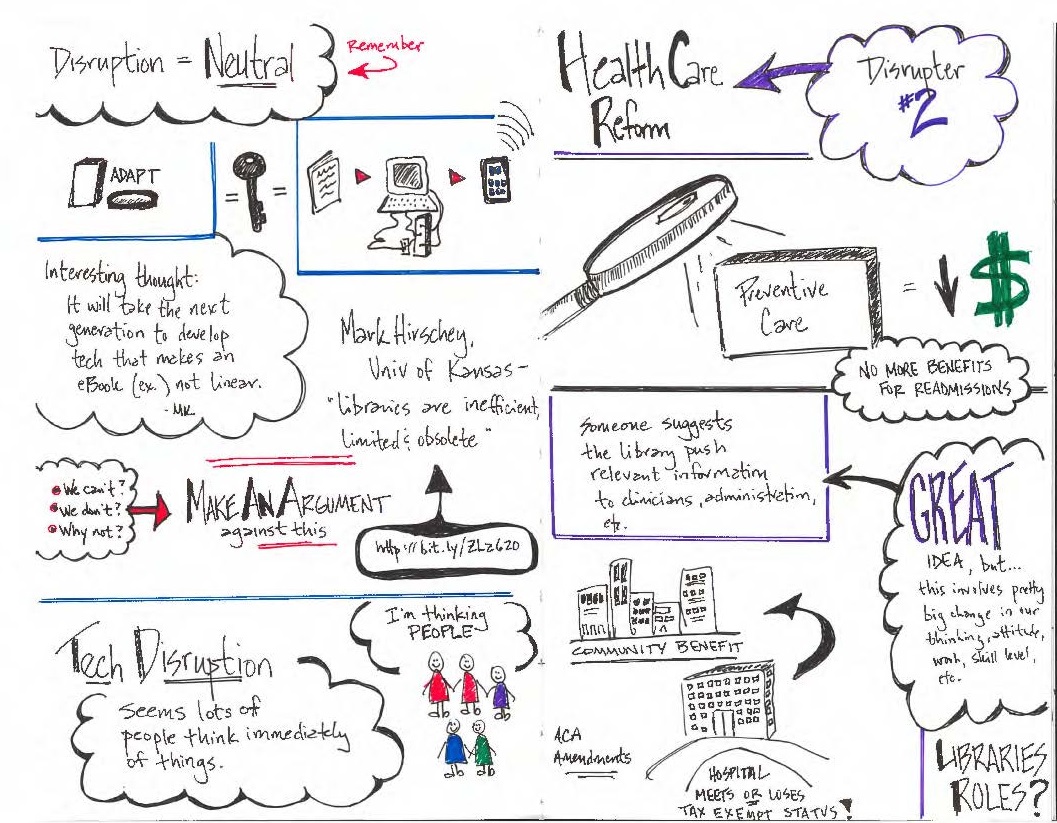 Disruption = Neutral
Remember
ADAPT
= =
Interesting thought:
It will take the next
generation to develop
tech that makes an
eBook (ex.) not linear.
- MK
Mark Hirschey,
Univ of Kansas -
"libraries are inefficient,
limited & obsolete"
http://bit.ly/ZLz620
• We can't?
• We don't?
• Why not?
MAKE AN ARGUMENT
against this
Tech Disruption
seems lots of
people think immediately
of things.
I'm thinking
PEOPLE
Health Care
Reform
Disrupter
#2
Preventive
Care
= $
NO MORE BENEFITS
FOR READMISSIONS
Someone suggests
the library push
relevant information
to clinicians, administration,
etc.
GREAT
IDEA, but...
this involves pretty
big change in our
thinking, attitude,
work, skill level,
etc.
COMMUNITY BENEFIT
ACA
Amendments
HOSPITAL
MEETS OR LOSES
TAX EXEMPT STATUS!
LIBRARIES
ROLES?